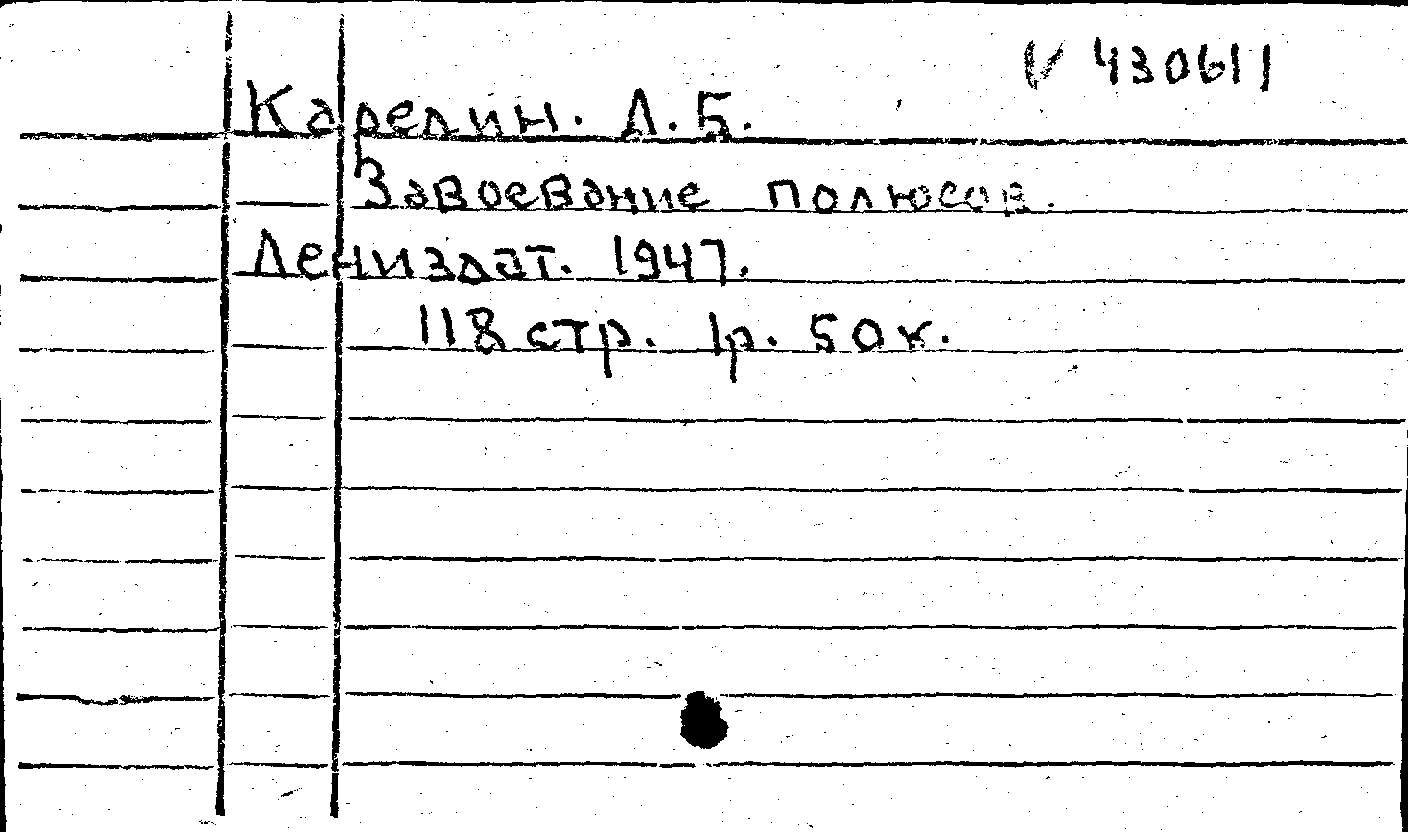 V 430611
Карелин. Д. Б.
Завоевание полюсов.
Лениздат. 1947.
118 стр. 1р. 50к.